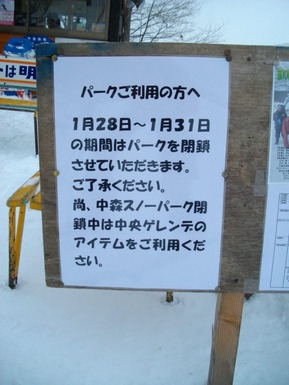 パークご利用の方へ
1月28日～1月31日
の期間はパークを閉鎖
させていただきます。
ご了承ください。
尚、中森スノーパーク閉
鎖中は中央ゲレンデの
アイテムをご利用くだ
さい。
は明